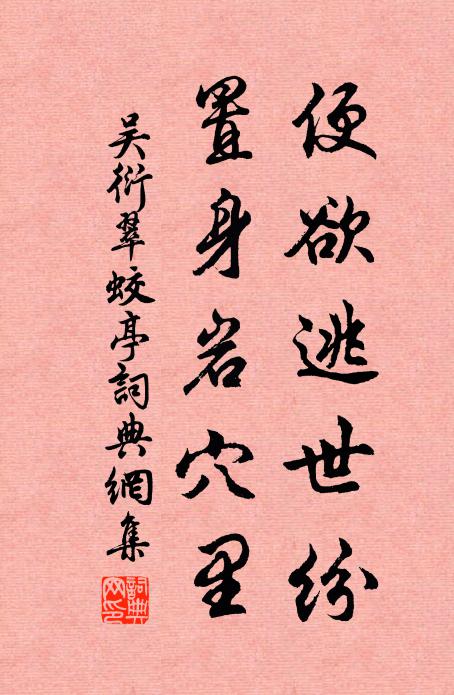 便欲逃世纷
置身岩穴里
吴衍翠蛟亭詞典網集
詞典網印